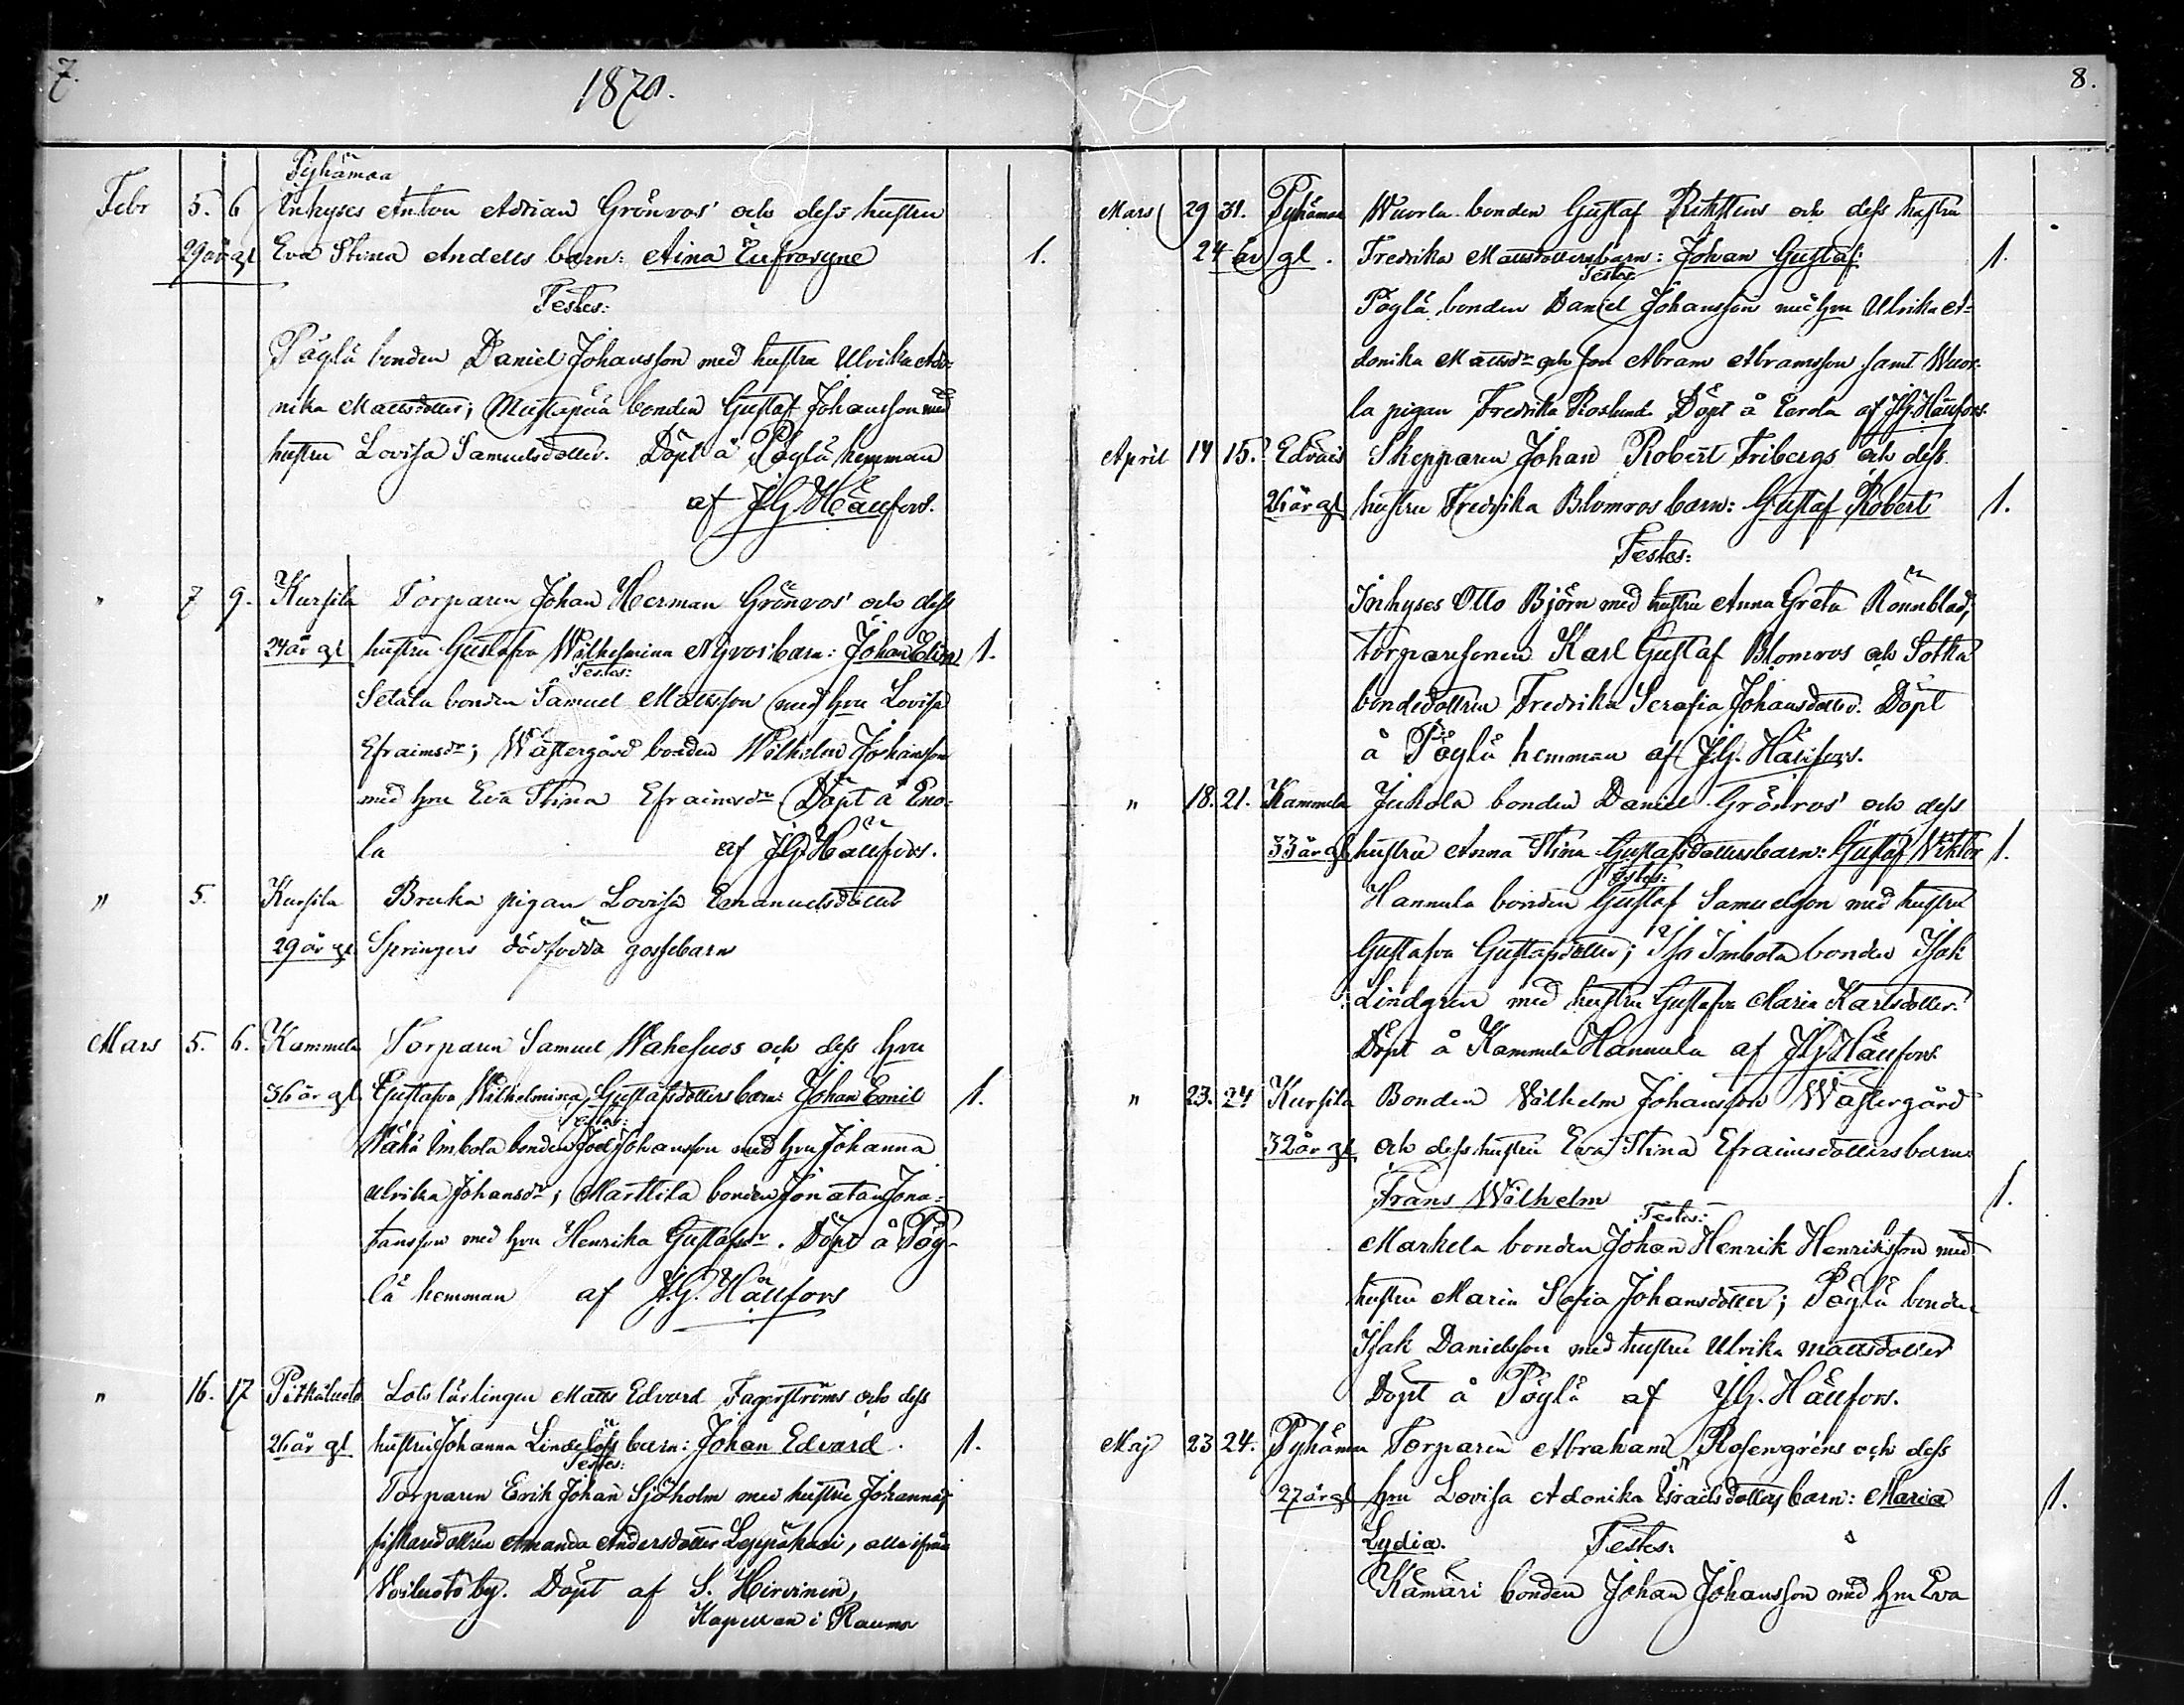 7.
1870.
Pyhämaa
Febr 5. 6 Inhyses Anton Adrian Grönroos' och dess hustru
29 år gl Eva Stina Andells barn: Aina Eufrosyne 1.
Testes:
Pöylä bonden Daniel Johansson med hustru Ulrika Ado-
nika Mattsdotter; Mustapää bonden Gustaf Johansson med
hustru Lovisa Samuelsdotter. Döpt å Pöylä hemman
af J.G. Hällfors.
" 7 9. Kursila Torparen Johan Herman Grönroos' och dess
24 år gl hustru Gustafva Wilhelmina Nyroos barn: Johan Elim 1.
Testes:
Setälä bonden Samuel Mattsson med hru Lovisa
Efraimsdr; Westergård bonden Wilhelm Johansson
med hru Eva Stina Efraimsdr Döpt å Eno-
la af J.G. Hällfors.
" 5. Kursila Bruka pigan Lovisa Emanuelsdotter
29 år gl Springers dödfödda gossebarn
Mars 5. 6. Kammela Torparen Samuel Waheluos och dess hru
36 år gl Gustafva Wilhelmina Gustafsdotters barn: Johan Emil 1.
Testes:
Wähä Imbola bonden Joel Johansson med hru Johanna
Ulrika Johansdr; Marttila bonden Jonatan Jona-
tansson med hru Henrika Gustafsdr. Döpt å Pöy-
lä hemman af J.G. Hällfors
" 16. 17 Pitkäluoto Lots lärlingen Matts Edvard Fagerströms och dess
26 år gl hustru Johanna Lindelöfs barn: Johan Edvard. 1.
Testes:
Torparen Erik Johan Sjöholm med hustru Johanna,
fiskaredottren Amanda Andersdotter Leppäkari, alla ifrån
Voiluoto by. Döpt af S. Hirvinen,
Kapellan i Raumo
8.
Mars 29 31. Pyhämaa Wuorla bonden Gustaf Rehstens och dess hustru
24 år gl. Fredrika Mattsdotters barn: Johan Gustaf. 1.
Testes:
Pöylä bonden Daniel Johansson med hru Ulrika A-
donika Mattsdr och son Abram Abramsson samt Wuor-
la pigan Fredrika Roslund. Döpt å Eerola af J.G. Hällfors.
April 14 15. Edväis Skepparen Johan Robert Fribergs och dess
26 år gl hustru Fredrika Blomroos barn: Gustaf Robert 1.
Testes:
Inhyses Otto Björn med hustru Anna Greta Rönnblad,
torparesonen Karl Gustaf Blomroos och Sotka
bondedottren Fredrika Serafia Johansdotter. Döpt
å Pöylä hemman af J.G. Hällfors.
" 18. 21. Kammela Jukola bonden Daniel Grönroos' och dess
33 år gl hustru Anna Stina Gustafsdotters barn: Gustaf Viktor 1.
Testes:
Hannula bonden Gustaf Samuelsson med hustru
Gustafva Gustafsdotter; Iso Imbola bonden Isak
Lindgren med hustru Gustafva Maria Karlsdotter.
Döpt å Kammela Hannula af J.G. Hällfors
" 23. 24 Kursila Bonden Wilhelm Johansson Westergård
32 år gl och dess hustru Eva Stina Efraimsdotters barn
Frans Wilhelm 1.
Testes:
Markela bonden Johan Henrik Henriksson med
hustru Maria Sofia Johansdotter; Pöylä bonden
Isak Danielsson med hustru Ulrika Mattsdotter
Döpt å Pöylä af J.G. Hällfors.
Maj 23 24. Pyhämaa Torparen Abraham Rosengréns och dess
27 år gl hru Lovisa Adonika Israelsdotters barn: Maria 1.
Lydia. Testes:
Kämäri bonden Johan Johansson med hru Eva